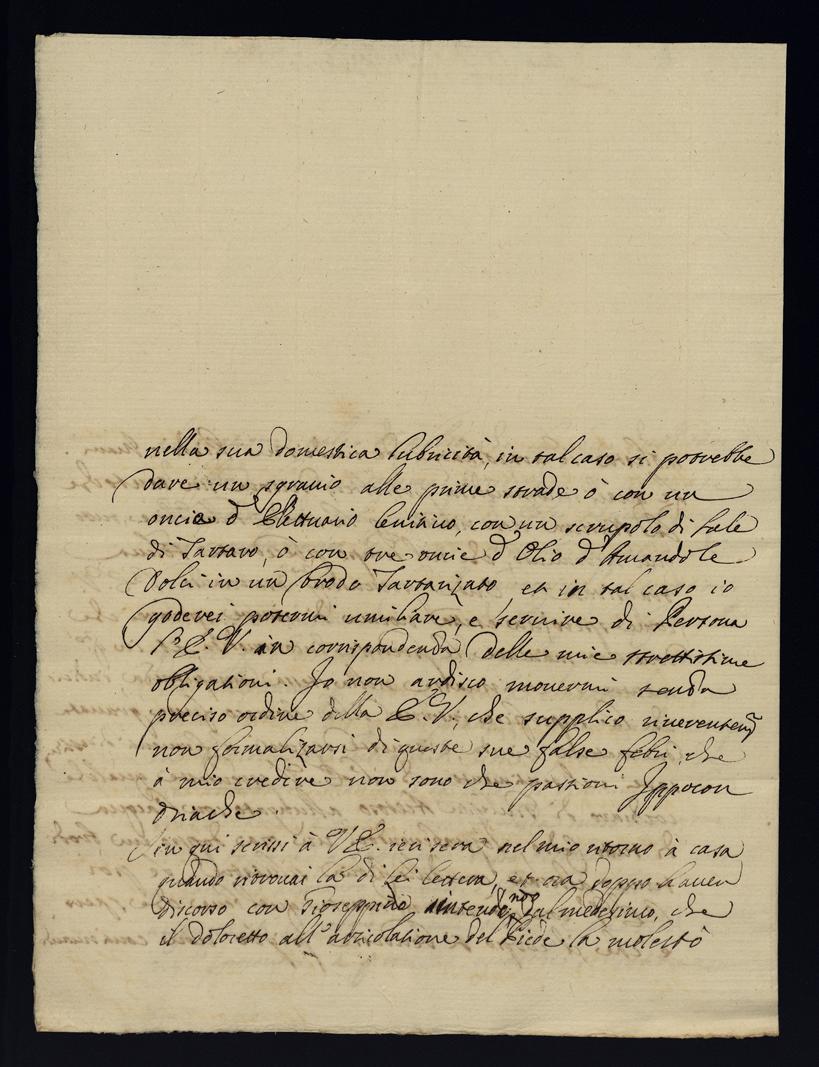 nella sua domestica lubricità, in tal caso si potrebbe
dare un sgravio alle prime strade ò con un
oncia d'Elettuario lenitivo, con un scrupolo di sale
di Tartaro, ò con tre oncie d'Olio d'Amandole
Dolci in un brodo Tartarizato et in tal caso io
goderei potermi umiliare, e servire di Persona
l'E.V. in corrispondenza delle mie strettissime
obligationi. Io non ardisco movermi senza
preciso ordine della E.V., che supplico riverentem
non formalizarsi di queste sue false febri, che
à mio credire non sono che passioni Ippocon
driache.
fin qui scrissi à V.E. ieri sera nel mio ritorno à casa
quando ritrovai la di lei lettera, et ora doppo haver
discorso con Gioseppino intendo dal medesimo, che
il doloretto all'articolatione del Piede la molestò